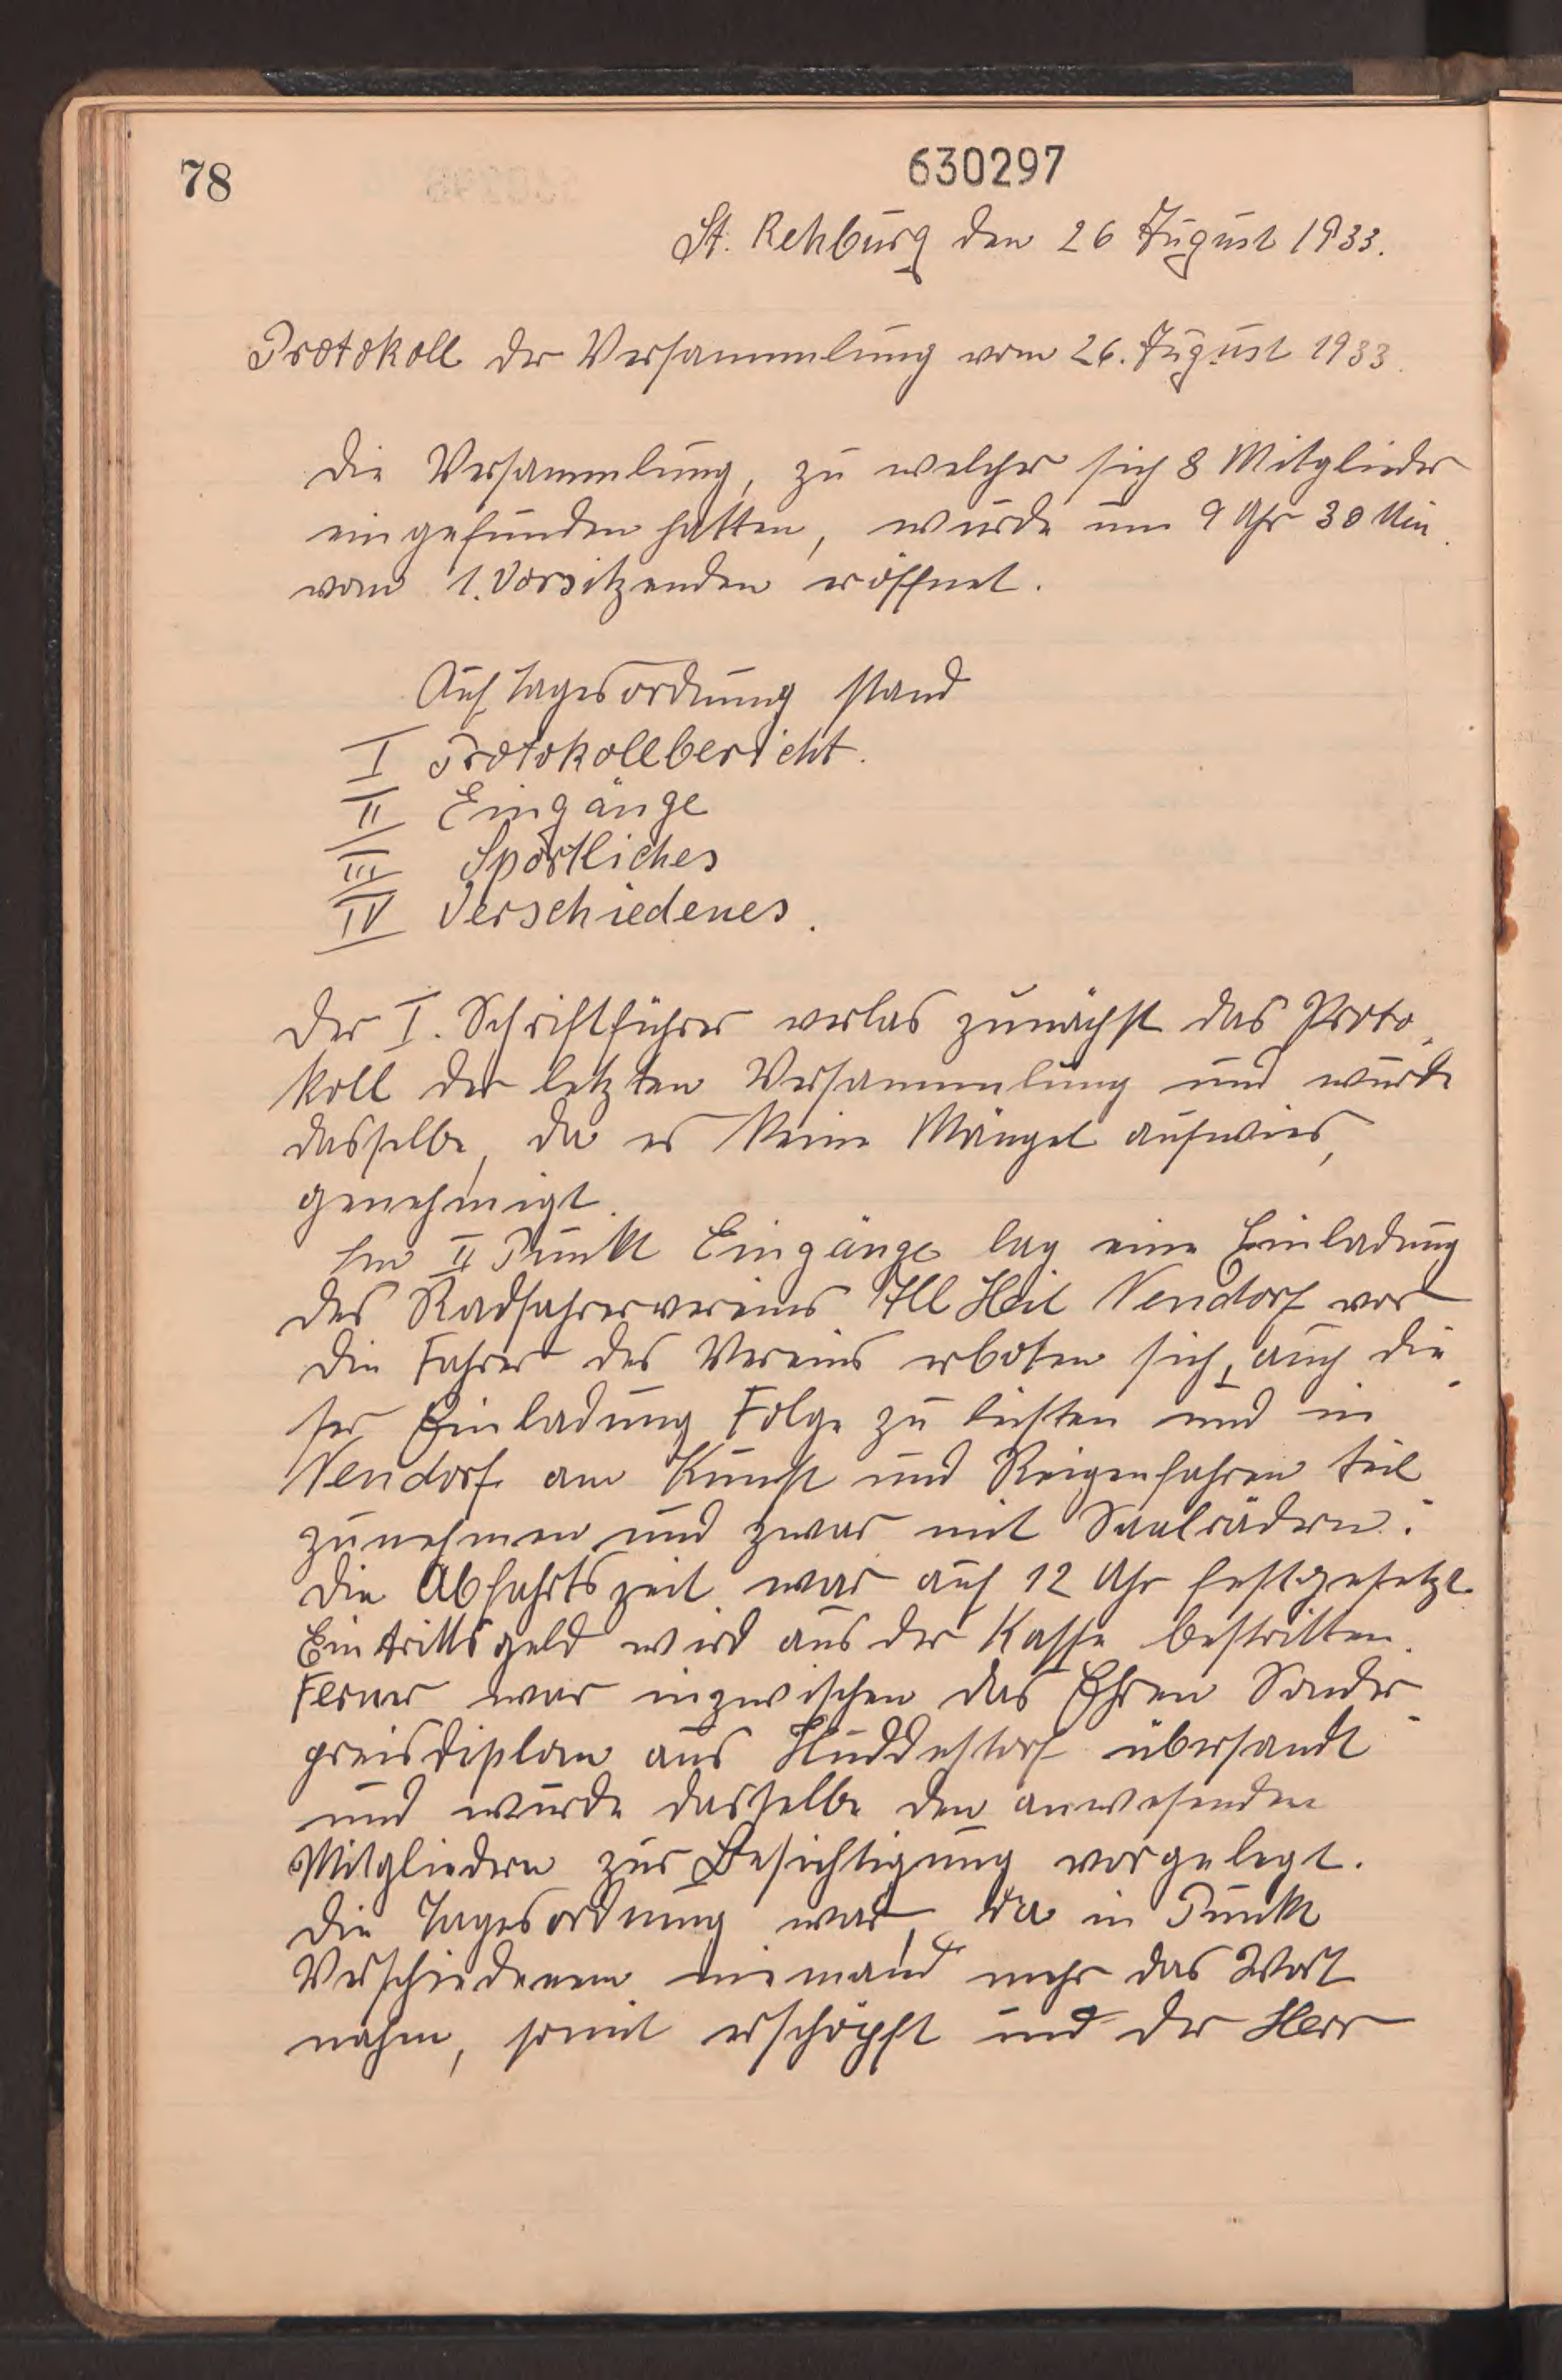 78
630297
St. Rehburg den 26 August 1933.
Protokoll der Versammlung vom 26. August 1933.
Die Versammlung, zu welcher sich 8 Mitglieder
eingefunden hatten, wurde um 9 Uhr 30 Min.
vom 1. Vorsitzenden eröffnet.
Auf Tagesordnung stand
I Protokollbericht.
II Eingänge
III Sportliches
IV Verschiedenes.
Der I. Schriftführer verlas zunächst das Proto-
koll der letzten Versammlung und wurde
dasselbe, da es keine Mängel aufwies,
genehmigt.
Im II Punkt Eingänge lag eine Einladung
des Radfahrervereins All Heil Nendorf vor
Die Fahrer des Vereins erboten sich, auch die-
ser Einladung Folge zu leisten und in
Nendorf am Kunst und Reigenfahren teil
zunehmen und zwar mit Saalrädern.
Die Abfahrtszeit war auf 12 Uhr festgesetzt.
Eintrittsgeld wird aus der Kasse bestritten.
Ferner war inzwischen das Ehren Sonder-
preisdiplom aus Huddestorf übersandt
und wurde dasselbe den anwesenden
Mitgliedern zur Besichtigung vorgelegt.
Die Tagesordnung war, da in Punkt
Verschiedenem niemand mehr das Wort
nahm, somit erschöpft und der Herr